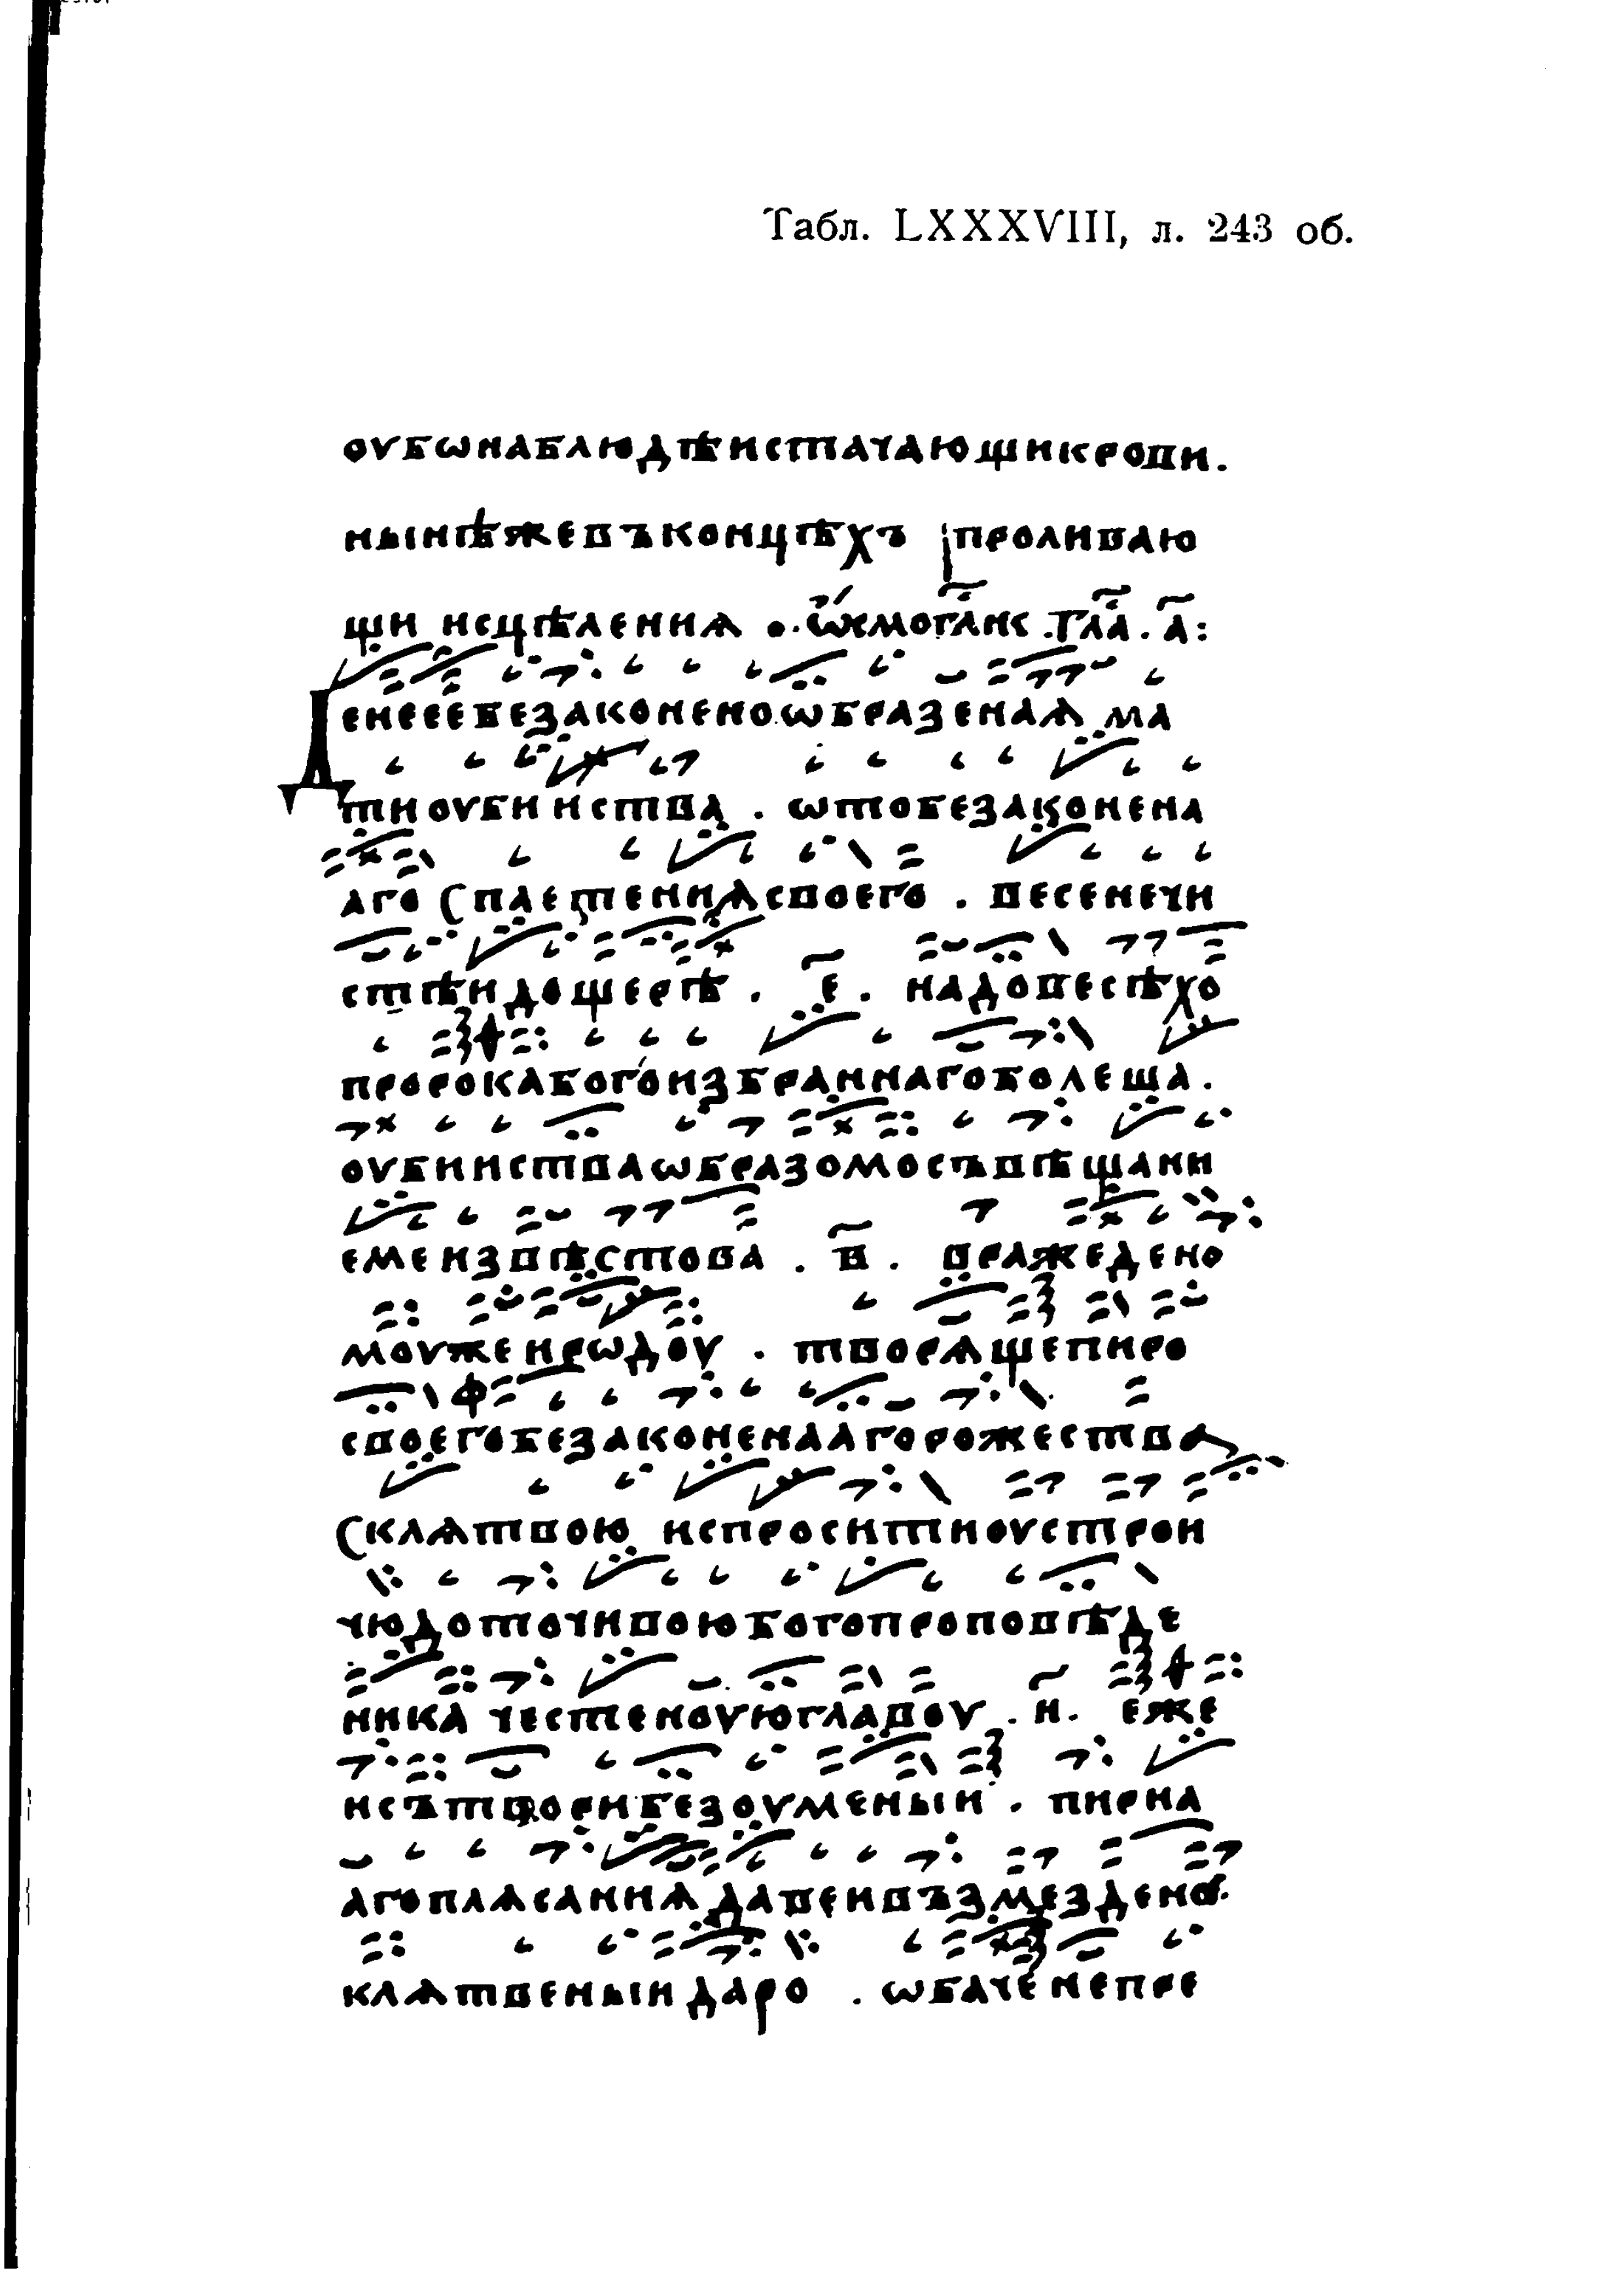 Табл. LXXXVIII, л. 243 об.
оубѡнаблюдѣистачающикрови.
нынѣжевъконцѣхъ проливаю
щи исцѣлениѧ .
енееебезаконеноѡбразенаѧ ма
тиоубииства . ѡтобезаконена
аго спаетениѧсвоего . весенечи
стѣидощерѣ . е҃ . надовесѣхо
пророкабогоизбраннагоболеша .
оубиистваѡбразомосъвѣщани
емеизвѣстова . в҃ . враждедено
моужеирѡдоу . творѧщепиро
своегобезаконенаагорожества
склѧтвою испроситиоустрои
чюдоточивоюбогопроповѣде
ника честеноуюглавоу . н . еже
исътворибезоуменыи . пирна
агоплѧсаниѧдавеивъзмездено
клѧтвеныидаро . ѡбаченепре